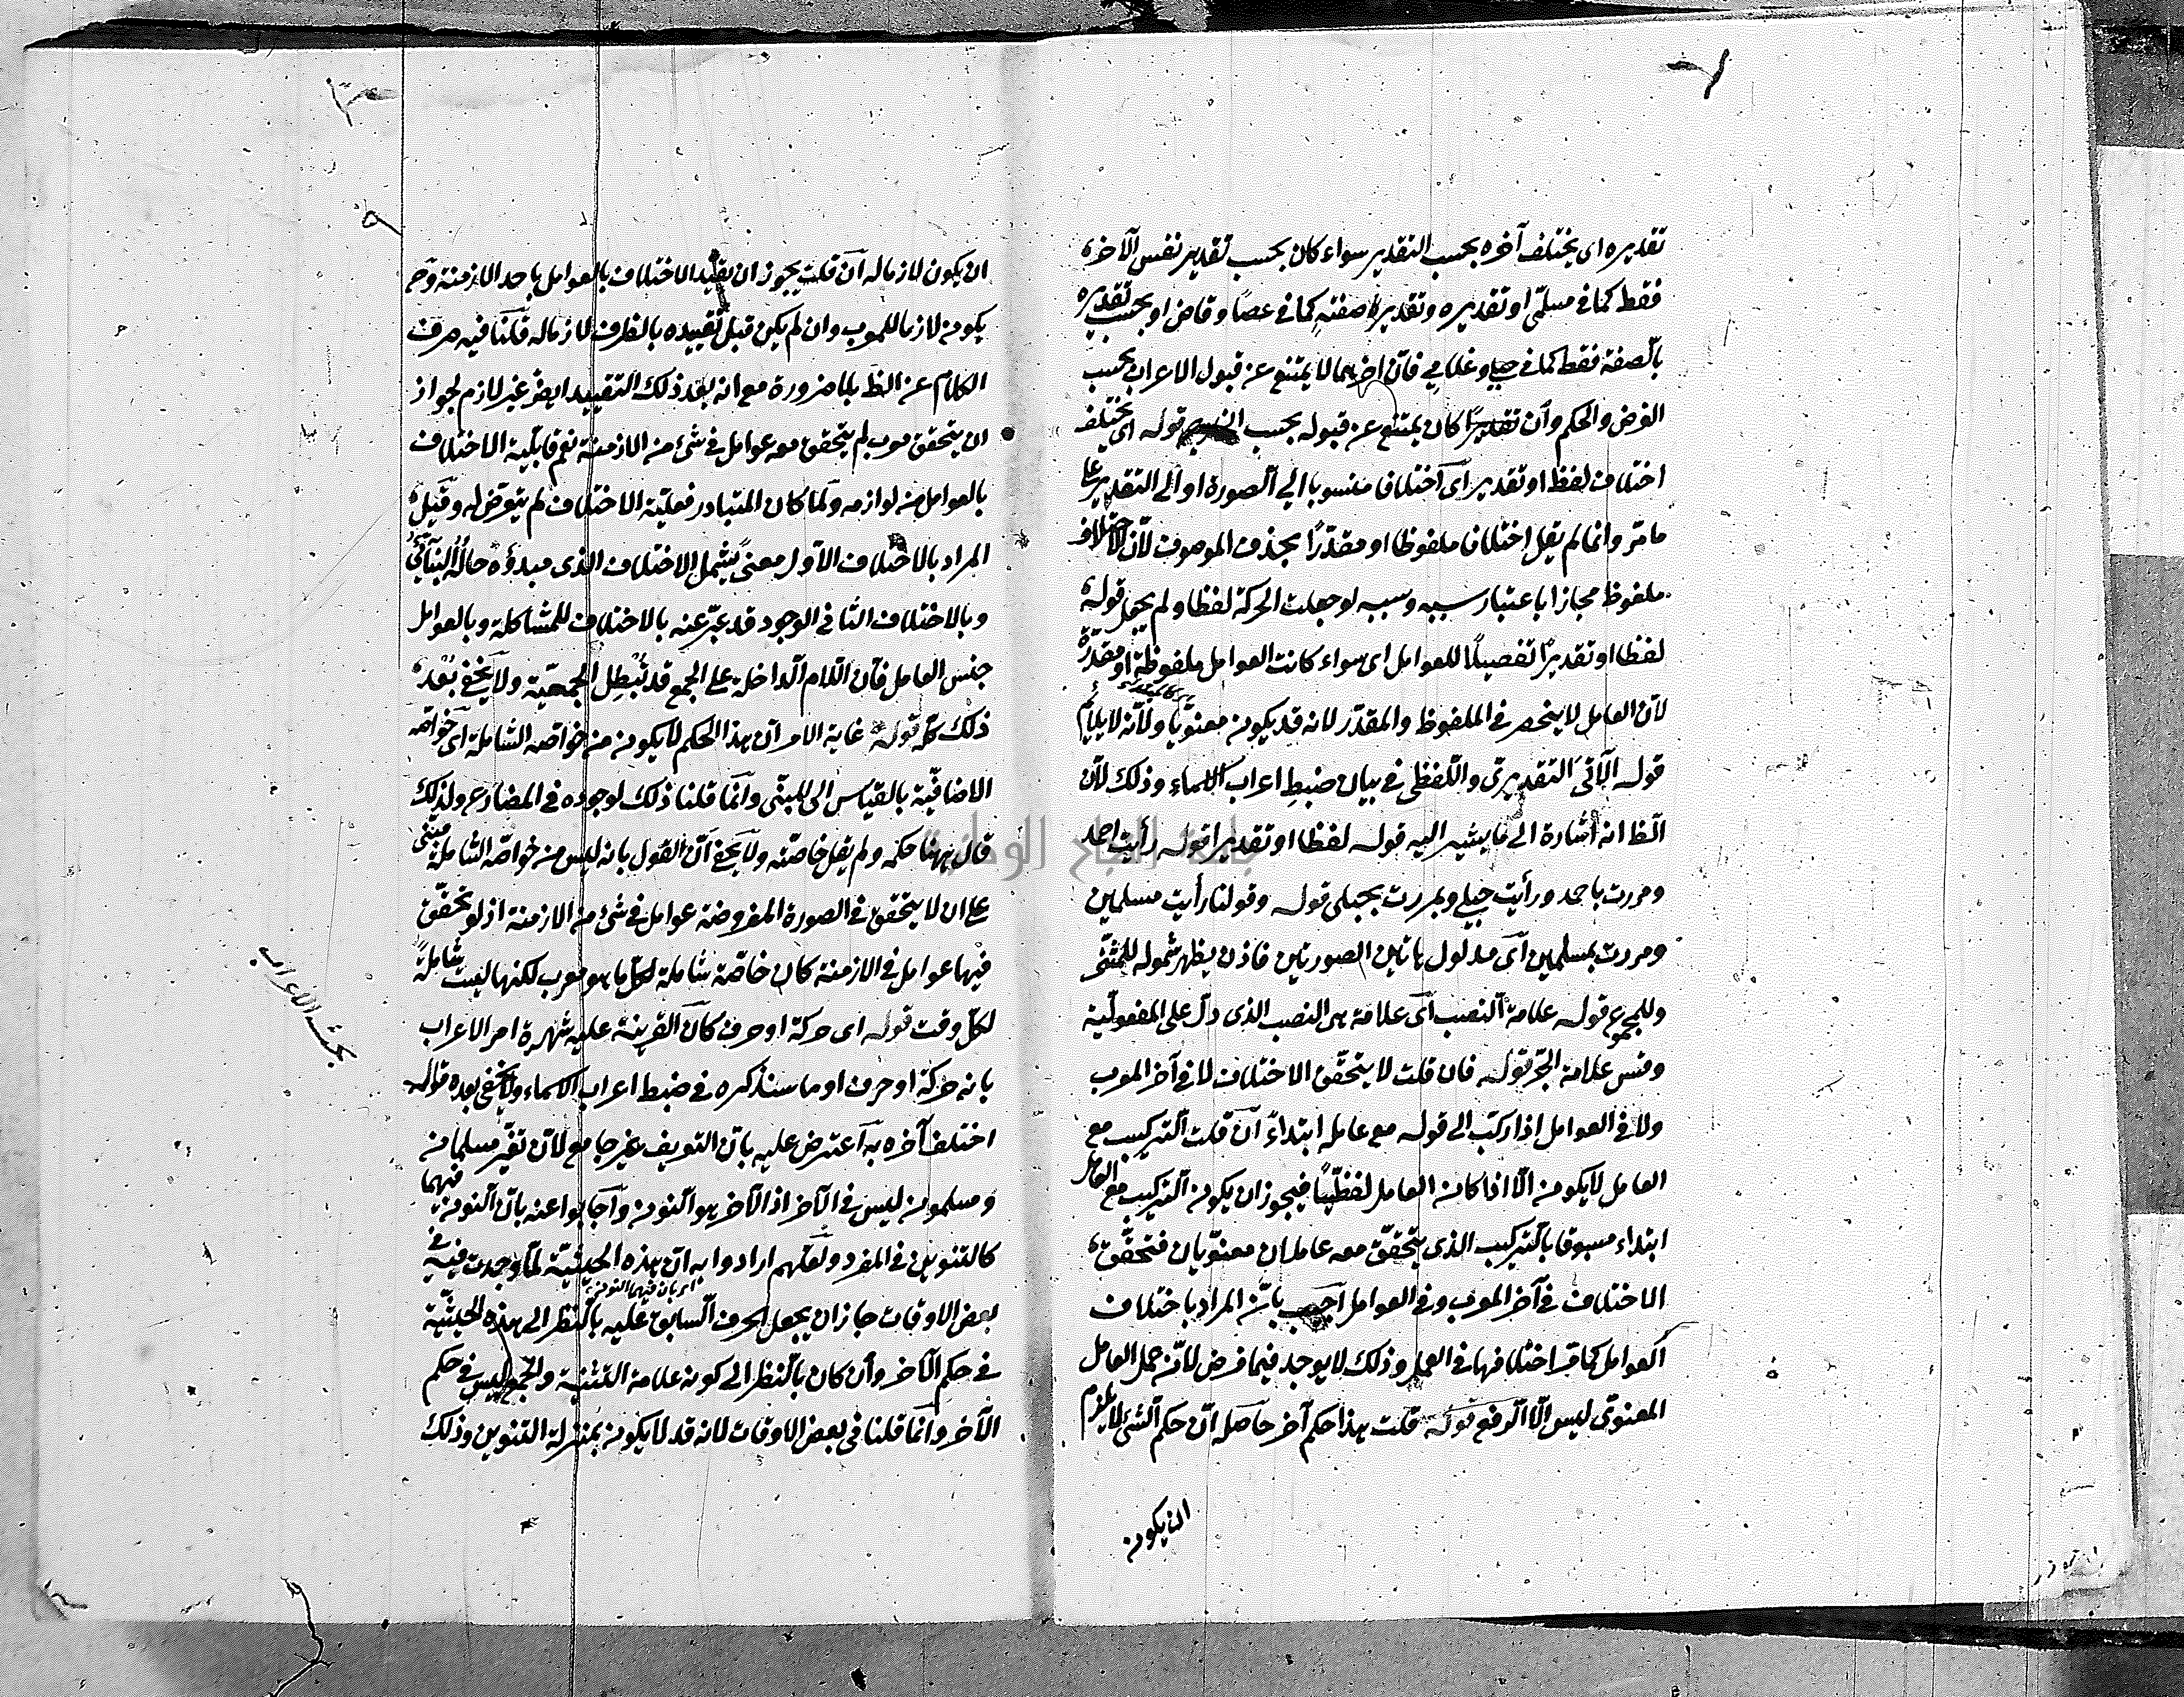 تقديره اى يختلف آخره بحسب التقدير سواء كان بحسب تقدير نفس الآخر
فقط كما فى مسلمّى او تقديره وتقدير صفته كما فى عصًا وقاض او بحسب تقديره
بالصفة فقط كما فى حبلى وغلامى فان اخرهما لا يمتنع عن قبول الاعراب بحسب
الفرض والحكم وان تقديرًا كان يمتنع عن قبوله بحسب قوله اى يختلف
اختلاف لفظ او تقدير اى اختلافا منسوبا الى الصورة او الى التقدير على
ما مرّ وانما لم يقل اختلافا ملفوظا او مقدّرًا بحذف الموصوف لان الاختلاف
ملفوظ مجازا باعتبار سببه وسببه لو جعلت الحركة لفظا ولم يجعل قوله
لفظا او تقديرًا تفصيلًا للعوامل اى سواء كانت العوامل ملفوظة او مقدّرة
لان العامل لا ينحصر فى الملفوظ والمقدّر لانه قد يكون معنويًّا ولانه لا يلايم
قوله الآتى التقديرى واللفظى فى بيان ضبط اعراب الاسماء وذلك لان
الظ انه اشارة الى ما يشير اليه قوله لفظا او تقديرا قوله رأيت احمد
ومررت باحمد ورأيت حبلى ومررت بحبلى قوله وقولنا رأيت مسلمين
ومررت بمسلمين اى مدلول هاتين الصورتين فاذن يظهر شموله للمثنّى
وللمجموع قوله علامة النصب اى علامة هى النصب الذى دلّ على المفعولية
وقس علامة الجرّ قوله فان قلت لا يتحقق الاختلاف لا فى آخر المعرب
ولا فى العوامل اذا ركب الى قوله مع عامله ابتداءً ان قلت التركيب مع
العامل لا يكون الّا اذا كان العامل لفظيًّا فيجوز ان يكون التركيب مع العامل
ابتداء مسبوقا بالتركيب الذى يتحقق معه عاملان معنويان فتحقّق
الاختلاف فى آخر المعرب وفى العوامل اجيب بانّ المراد باختلاف
العوامل كما مرّ اختلافها فى العمل وذلك لا يوجد فيما فرض لانّ عمل العامل
المعنوىّ ليس الّا الرفع قوله قلت هذا حكم آخر حاصله انّ حكم الشئ لا يلزم
ان يكون
ان يكون لازما له ان قلت يجوز ان يقيد الاختلاف بالعوامل باحد الازمنة وح
يكون لازما للمعرب وان لم يكن قبل تقييده بالظرف لازما له قلنا فيه صرف
الكلام عن الظ بلا ضرورة مع انه بعد ذلك التقييد ايضً غير لازم لجواز
ان يتحقق معرب لم يتحقق معه عوامل فى شئ من الازمنة نعم قابلية الاختلاف
بالعوامل من لوازمه ولما كان المتبادر فعليّة الاختلاف لم يتعرّض له وقيل
المراد بالاختلاف الاول معنًى يشمل الاختلاف الذى مبدؤه حاله البنائى
وبالاختلاف الثا فى الوجود قد عبّر عنه بالاختلاف للمشاكلة وبالعوامل
جنس العامل فان اللام الداخلة على الجمع قد تُبطِل الجمعيّة ولا يخفى بُعْد
ذلك كلّه قوله غاية الامر ان هذا الحكم لا يكون من خواصّه الشاملة اى خواصّه
الاضافيّة بالقياس الى المبنّى وانما قلنا ذلك لوجوده فى المضارع ولذلك
قال ههنا حكمه ولم يقل خاصّته ولا يخفى انّ القول بانه ليس من خواصّه الشاملة مبنّى
على ان لا يتحقق فى الصورة المفروضة عوامل فى شئ من الازمنة اذ لو تحقّق
فيها عوامل فى الازمنة كان خاصّة شاملة لكلّ ما هو معرب لكنها ليست شاملةً
لكلّ وقت قوله اى حركة او حرف كان القرينة عليه شهرة امر الاعراب
بانه حركة او حرف او ما سنذكره فى ضبط اعراب الاسماء ولا يخفى بعده قوله
اختلف آخره به اعترض عليه بانّ التعريف غير جامع لانّ تغيّر مسلمان
ومسلمون ليس فى الآخر اذ الآخر هو النون واجابوا عنه بانّ النون فيهما
كالتنوين فى المفرد ولعلّهم ارادوا به انّ بهذه الحيثيّة لمّا وجدت فيه فى
بعض الاوقات جاز ان يجعل الحرف السابق عليه بالنظر الى هذه الحيثيّة
فى حكم الآخر وان كان بالنظر الى كونه علامة التثنية والجمع ليس فى حكم
الآخر وانما قلنا فى بعض الاوقات لانه قد لا يكون بمنزلة التنوين وذلك
بحث الاعراب